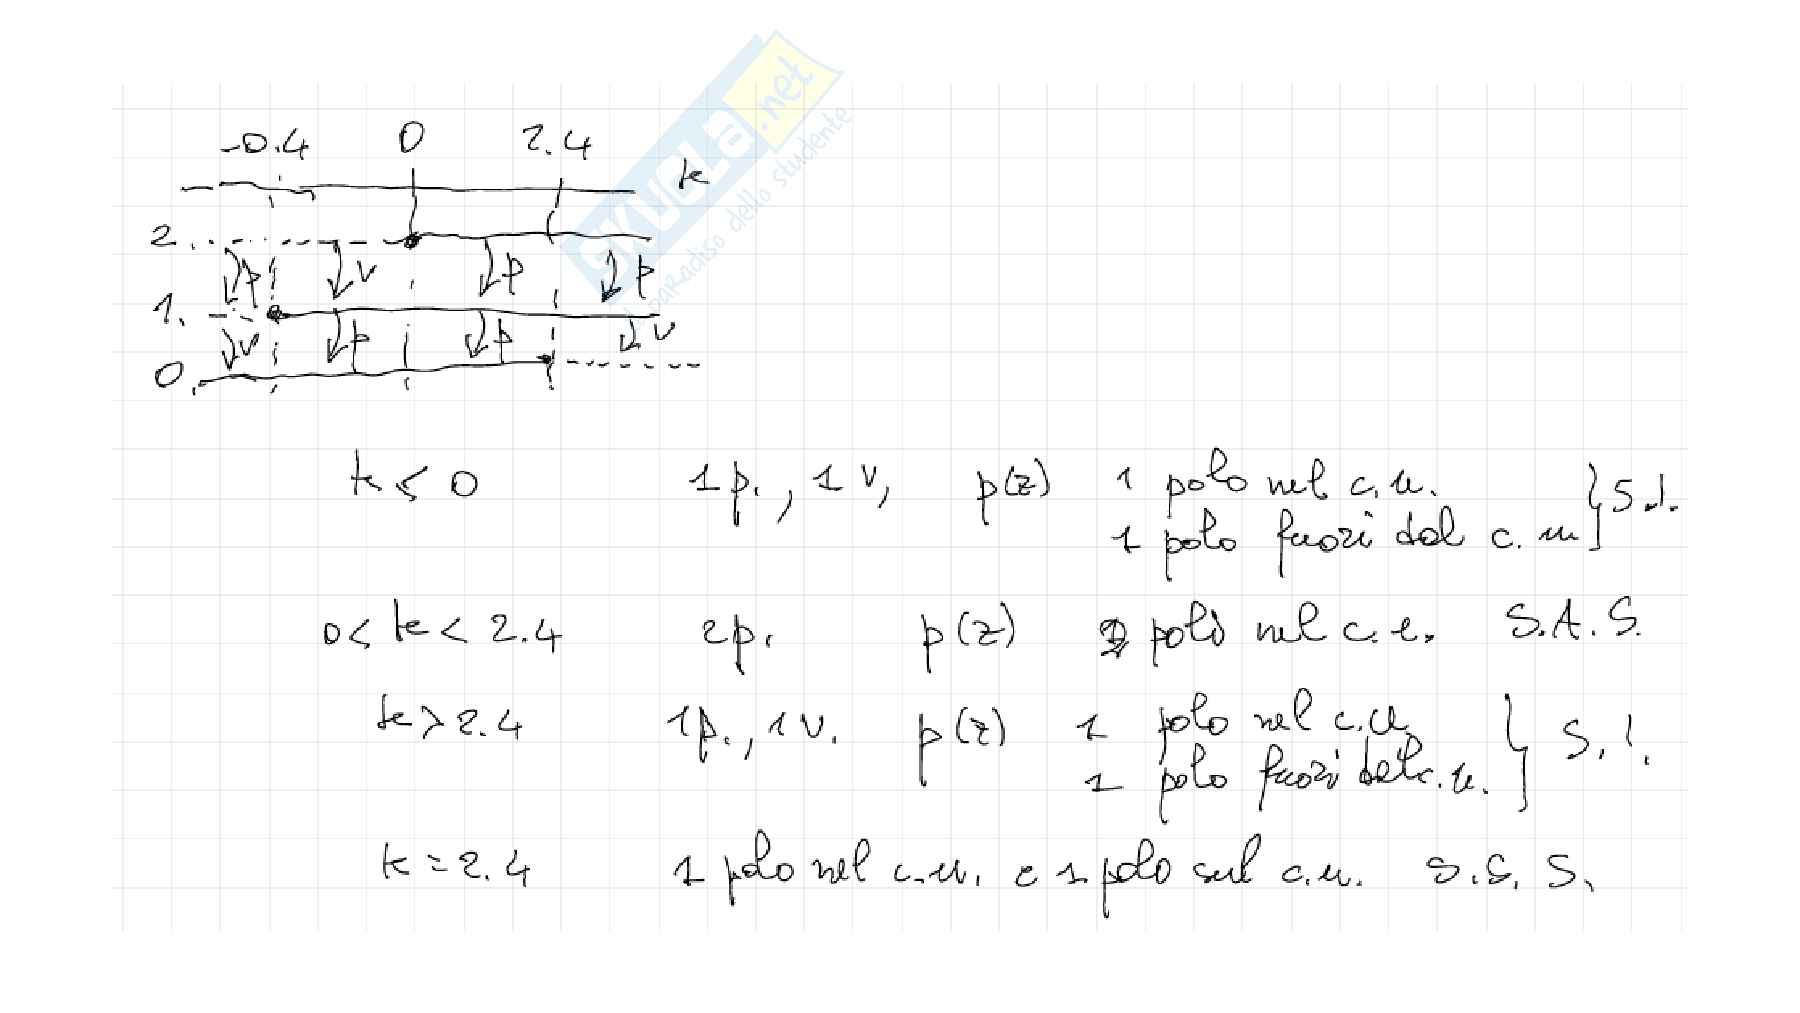 -0.4 0 2.4
k
2.
p v p p
1.
v p p v
0.
k < 0 1p., 1v, p(z) 1 polo nel c.u. } S.I.
1 polo fuori dal c.u.
0 < k < 2.4 2p. p(z) 2 poli nel c.u. S.A.S.
k > 2.4 1p., 1v. p(z) 1 polo nel c.u. } S.I.
1 polo fuori dal c.u.
k = 2.4 1 polo nel c.u. e 1 polo sul c.u. S.S.S.
SKUOLA.net
paradiso dello studente